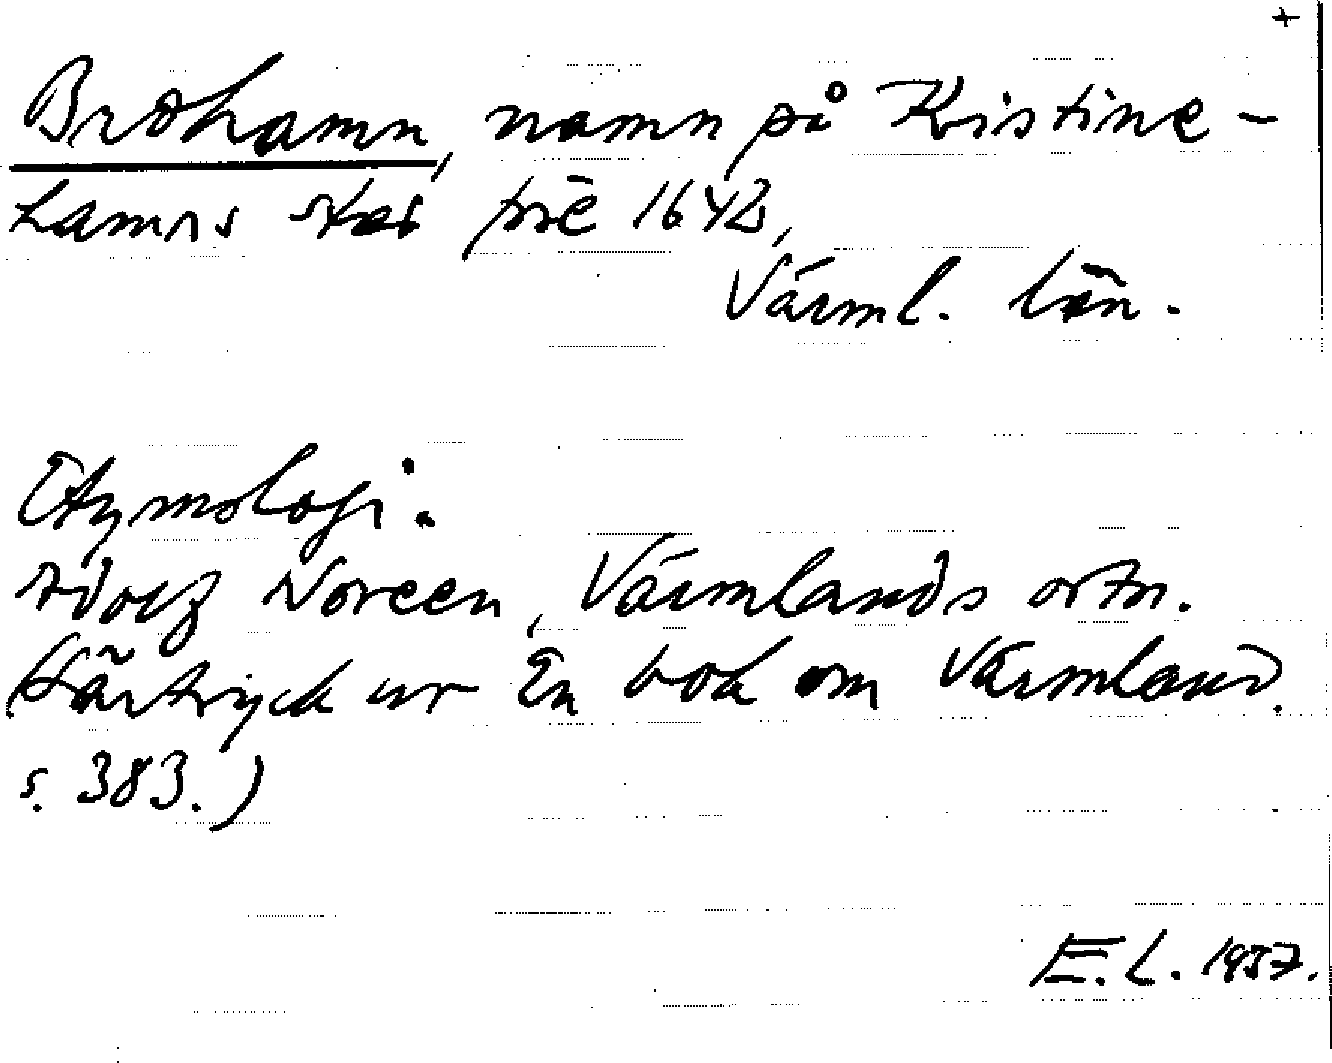 +
Brohamn, namn på Kristine-
hamns stad före 1642,
Värml. län.
Etymologi.
Adolf Noreen, Värmlands ortn.
(Särtryck ur En bok om Värmland.
s. 383.)
E.L. 1937.